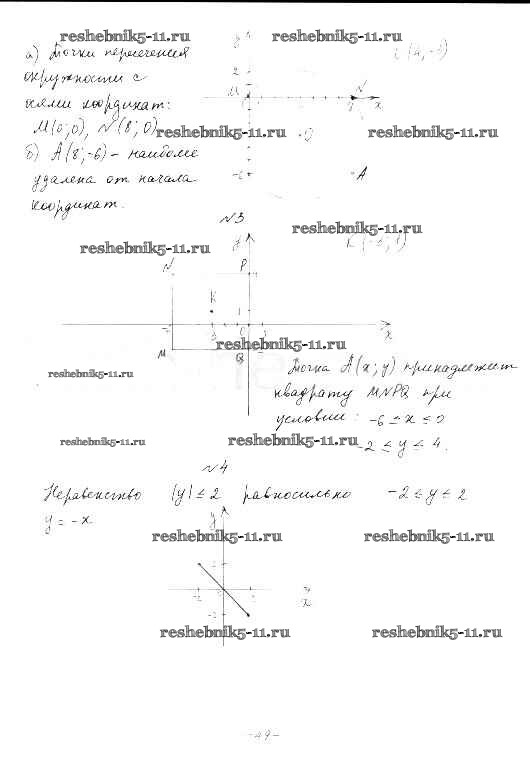 reshebnik5-11.ru reshebnik5-11.ru
а) Точки пересечения
окружности с
осями координат:
M(0;0), N(8;0)
reshebnik5-11.ru reshebnik5-11.ru
б) A(8;-6) – наиболее
удалена от начала
координат.
y
2
M
N
x
A
№3
reshebnik5-11.ru reshebnik5-11.ru
y
N P
K
1
0
x
M Q
reshebnik5-11.ru
reshebnik5-11.ru
Точка A(x;y) принадлежит
квадрату MNPQ при
условии: -6 ≤ x ≤ 0
-2 ≤ y ≤ 4.
reshebnik5-11.ru reshebnik5-11.ru
№4
Неравенство |y| ≤ 2 равносильно -2 ≤ y ≤ 2
y = -x
y
reshebnik5-11.ru reshebnik5-11.ru
-2
x
reshebnik5-11.ru reshebnik5-11.ru
-49-